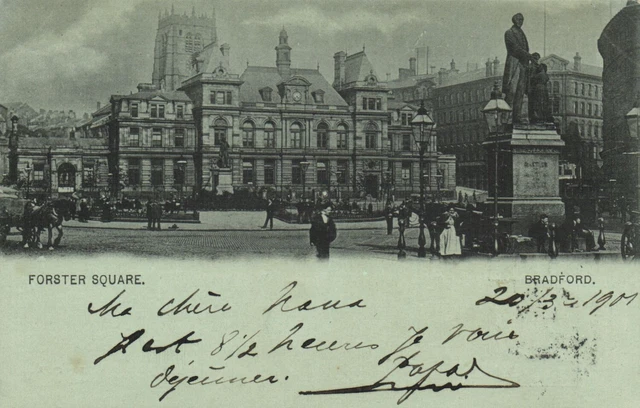 FORSTER SQUARE.
BRADFORD.
Ma chère Nana 20/3 1901
Il est 8 1/2 heures Je vais
déjeuner. Papa